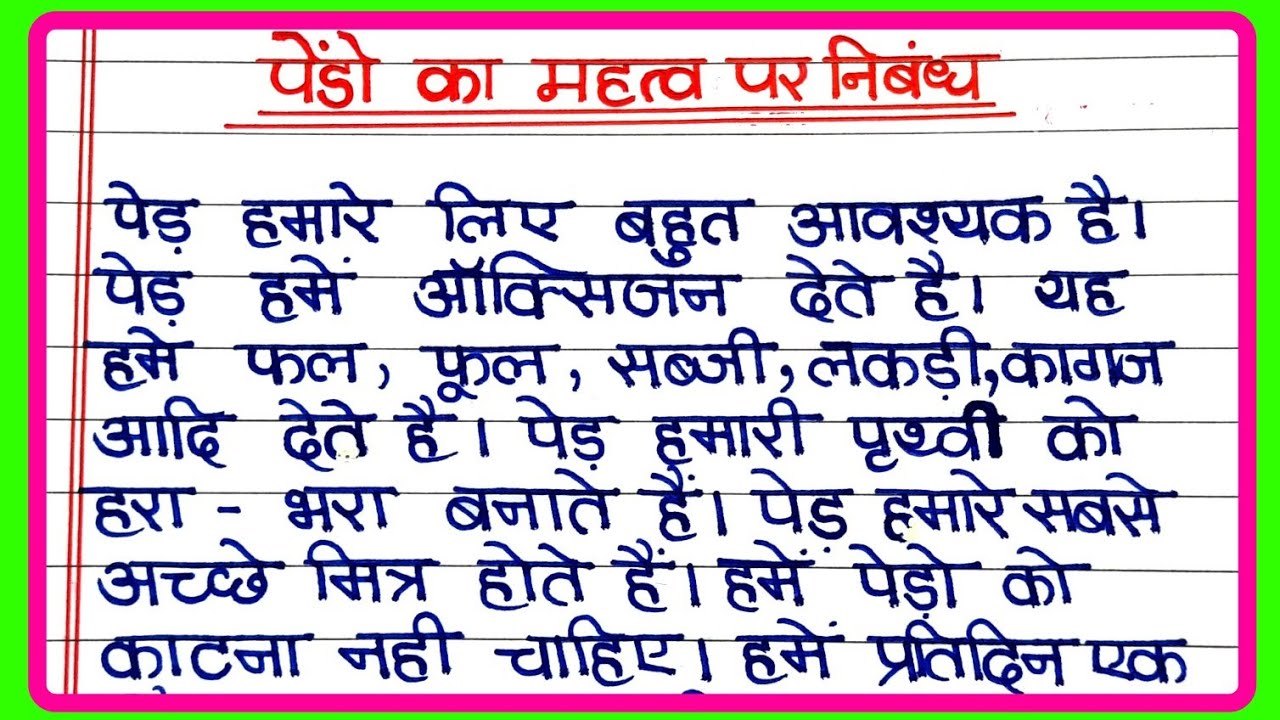 पेंडो का महत्व पर निबंध
पेड़ हमारे लिए बहुत आवश्यक है।
पेड़ हमें ऑक्सिजन देते है। यह
हमें फल, फूल, सब्जी, लकड़ी, कागज
आदि देते है। पेड़ हमारी पृथ्वी को
हरा - भरा बनाते हैं। पेड़ हमारे सबसे
अच्छे मित्र होते हैं। हमें पेड़ो को
काटना नही चाहिए। हमें प्रतिदिन एक